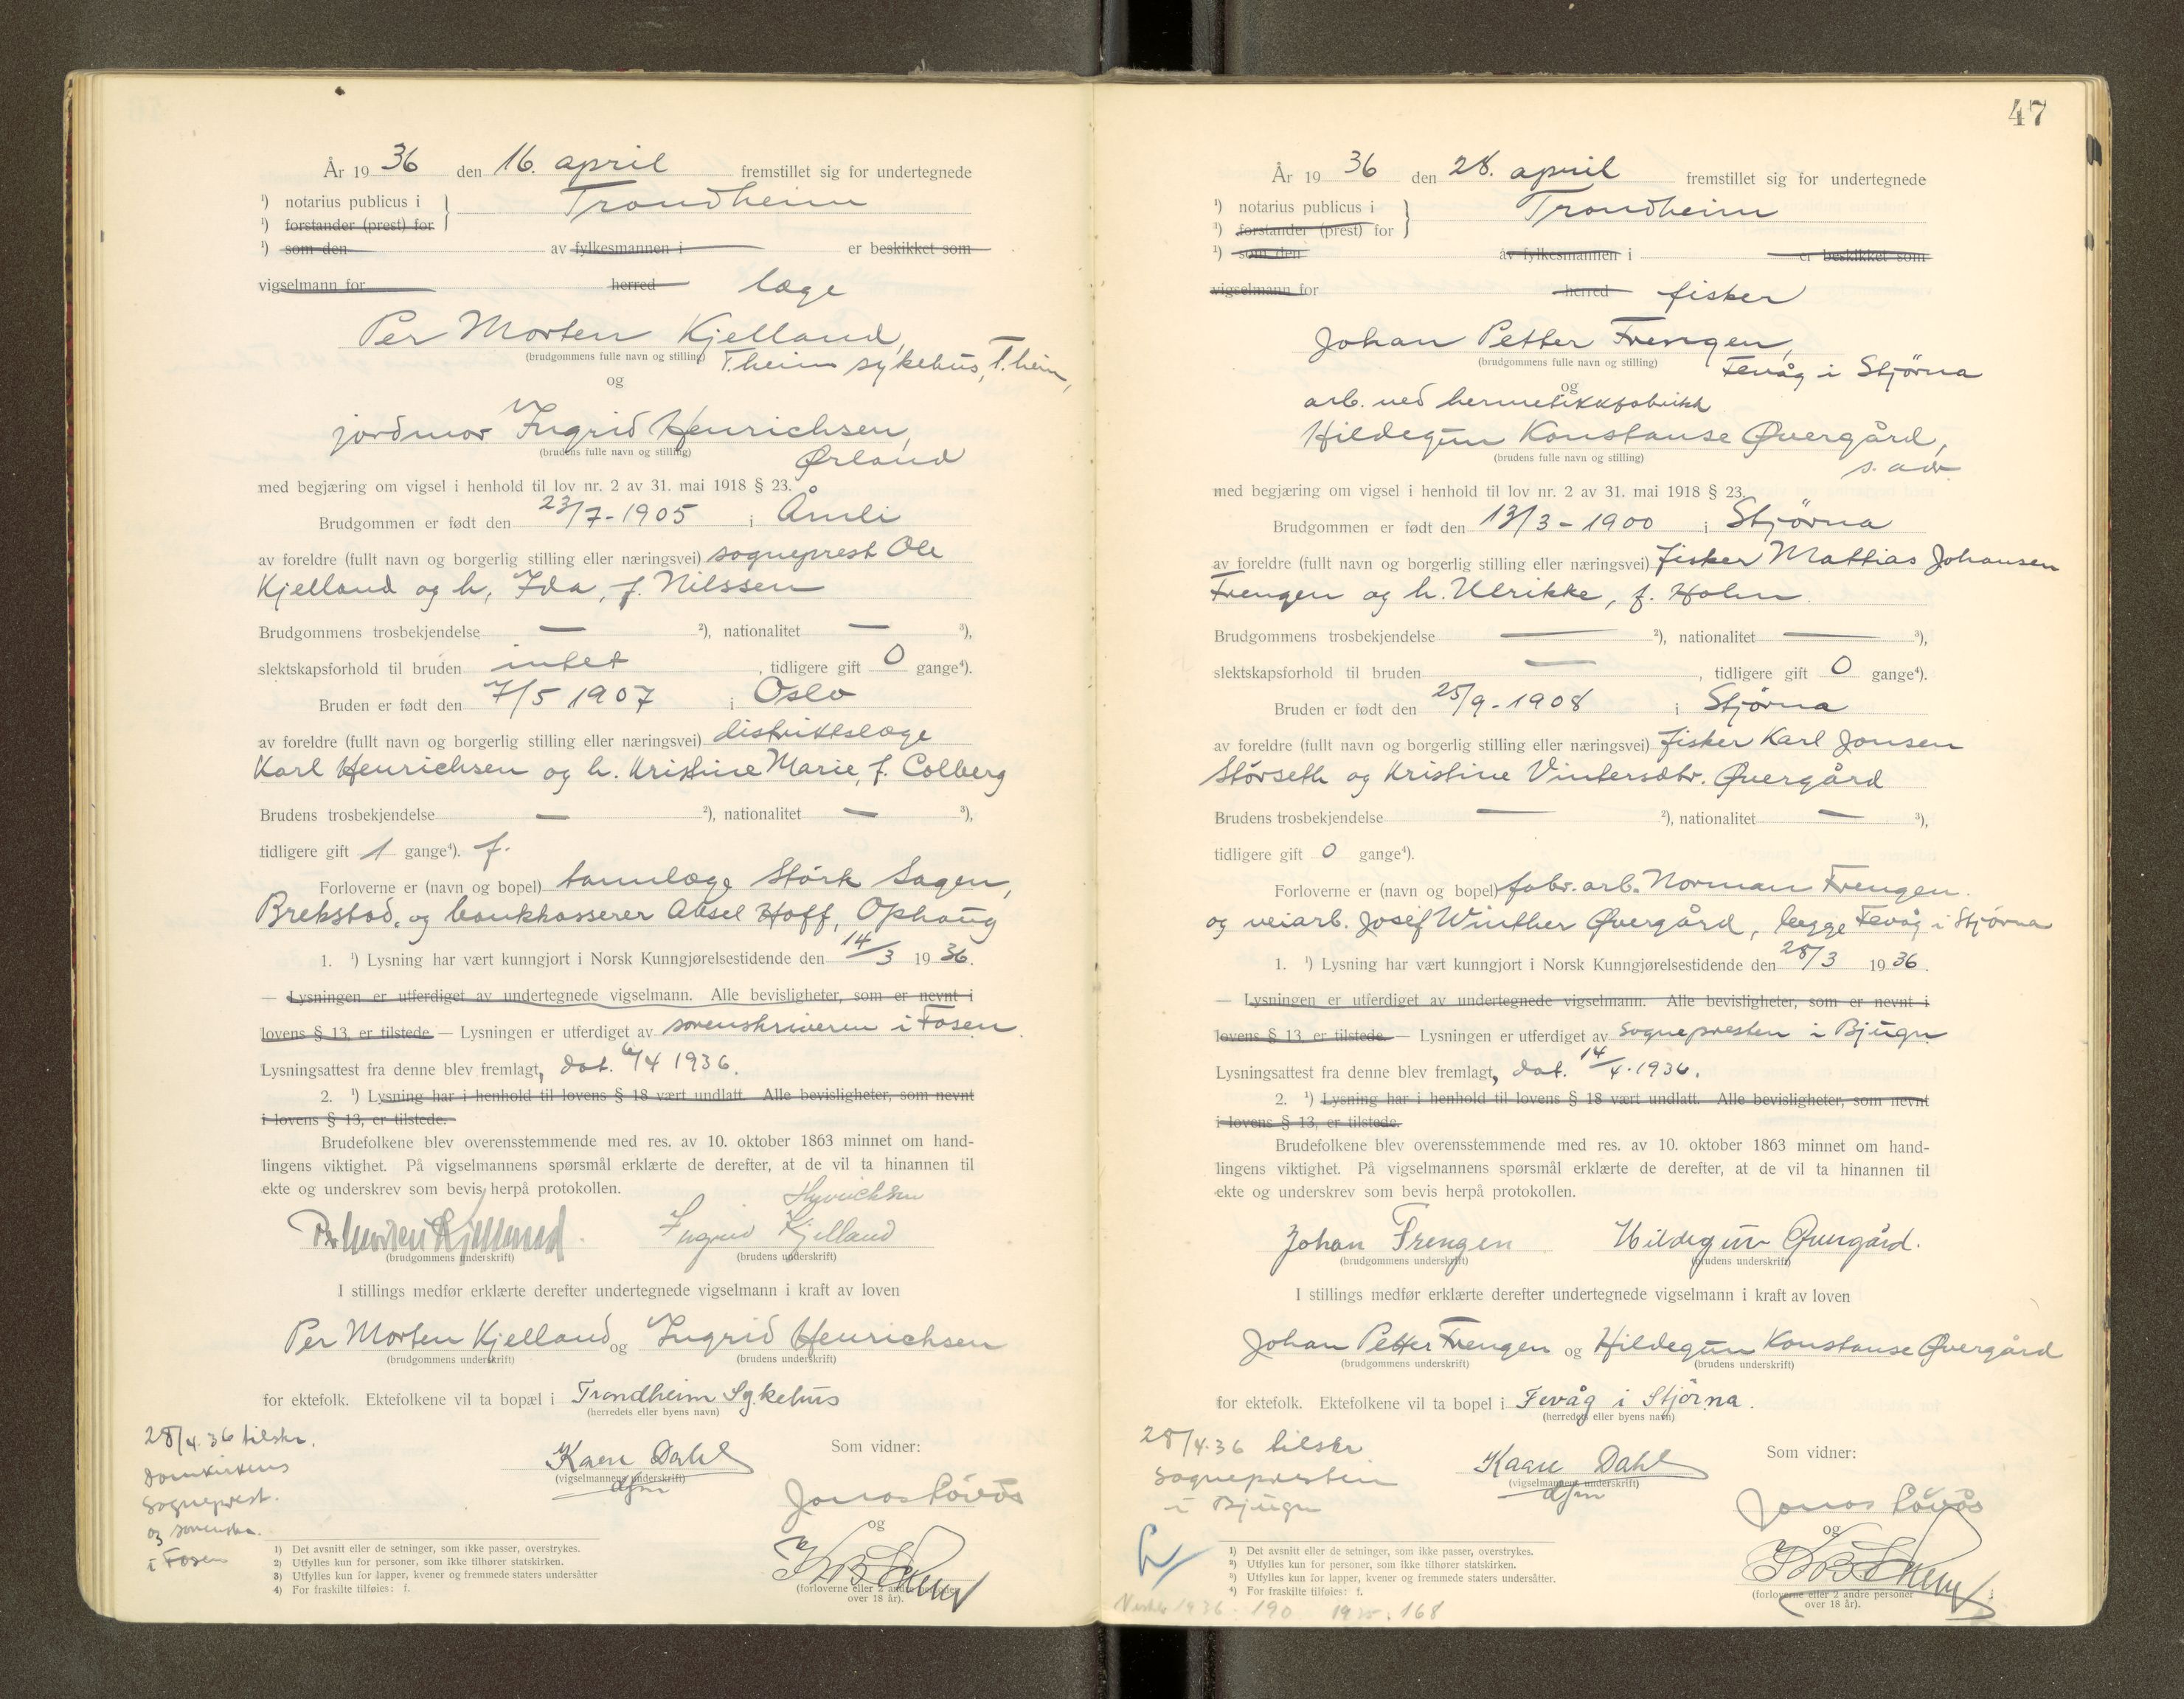 År 1936 den 16. april fremstillet sig for undertegnede
¹) notarius publicus i } Trondheim
¹) forstander (prest) for
¹) som den av fylkesmannen i er beskikket som
vigselmann for herred læge
Per Morten Kjelland,
(brudgommens fulle navn og stilling) T.heim sykehus, T.heim,
og
jordmor Ingrid Henrichsen,
(brudens fulle navn og stilling) Ørland
med begjæring om vigsel i henhold til lov nr. 2 av 31. mai 1918 § 23.
Brudgommen er født den 23/7-1905 i Åmli
av foreldre (fullt navn og borgerlig stilling eller næringsvei) sogneprest Ole
Kjelland og h. Ida, f. Nilssen
Brudgommens trosbekjendelse — ²), nationalitet — ³),
slektskapsforhold til bruden intet, tidligere gift 0 gange⁴).
Bruden er født den 7/5 1907 i Oslo
av foreldre (fullt navn og borgerlig stilling eller næringsvei) distriktslæge
Karl Henrichsen og h. Kristine Marie, f. Colberg
Brudens trosbekjendelse — ²), nationalitet — ³),
tidligere gift 1 gange⁴). f.
Forloverne er (navn og bopel) tannlæge Størk Sagen,
Brekstad, og bankkasserer Aksel Hoff, Ophaug
1. ¹) Lysning har vært kunngjort i Norsk Kunngjørelsestidende den 14/3 1936.
— Lysningen er utferdiget av undertegnede vigselmann. Alle bevisligheter, som er nevnt i
lovens § 13, er tilstede. — Lysningen er utferdiget av sorenskriveren i Fosen.
Lysningsattest fra denne blev fremlagt, dat. 6/4 1936.
2. ¹) Lysning har i henhold til lovens § 18 vært undlatt. Alle bevisligheter, som nevnt
i lovens § 13, er tilstede.
Brudefolkene blev overensstemmende med res. av 10. oktober 1863 minnet om hand-
lingens viktighet. På vigselmannens spørsmål erklærte de derefter, at de vil ta hinannen til
ekte og underskrev som bevis herpå protokollen.
Henrichsen
Per Morten Kjelland Ingrid Kjelland
(brudgommens underskrift) (brudens underskrift)
I stillings medfør erklærte derefter undertegnede vigselmann i kraft av loven
Per Morten Kjelland og Ingrid Henrichsen
(brudgommens underskrift) (brudens underskrift)
for ektefolk. Ektefolkene vil ta bopæl i Trondheim Sykehus
(herredets eller byens navn)
28/4.36 tilskr.
domkirkens
sogneprest.
og sorenskr.
i Fosen
Som vidner:
Kaare Dahl
(vigselmannens underskrift)
dfm
Jonas Løvås
og
(forloverne eller 2 andre personer
over 18 år).
1) Det avsnitt eller de setninger, som ikke passer, overstrykes.
2) Utfylles kun for personer, som ikke tilhører statskirken.
3) Utfylles kun for lapper, kvener og fremmede staters undersåtter
4) For fraskilte tilføies: f.
47
År 1936 den 28. april fremstillet sig for undertegnede
¹) notarius publicus i } Trondheim
¹) forstander (prest) for
¹) som den av fylkesmannen i er beskikket som
vigselmann for herred fisker
Johan Petter Frengen,
(brudgommens fulle navn og stilling) Fevåg i Stjørna
og
arb. ved hermetikkfabrikk
Hildegun Konstanse Øvergård,
(brudens fulle navn og stilling) s. adr.
med begjæring om vigsel i henhold til lov nr. 2 av 31. mai 1918 § 23.
Brudgommen er født den 13/3-1900 i Stjørna
av foreldre (fullt navn og borgerlig stilling eller næringsvei) fisker Mattias Johansen
Frengen og h. Ulrikke, f. Holm.
Brudgommens trosbekjendelse — ²), nationalitet — ³),
slektskapsforhold til bruden —, tidligere gift 0 gange⁴).
Bruden er født den 25/9-1908 i Stjørna
av foreldre (fullt navn og borgerlig stilling eller næringsvei) fisker Karl Jonsen
Størseth og Kristine Vintersdtr. Øvergård
Brudens trosbekjendelse — ²), nationalitet — ³),
tidligere gift 0 gange⁴).
Forloverne er (navn og bopel) fabr.arb. Norman Frengen.
og veiarb. Josef Winther Øvergård, begge Fevåg i Stjørna
1. ¹) Lysning har vært kunngjort i Norsk Kunngjørelsestidende den 28/3 1936.
— Lysningen er utferdiget av undertegnede vigselmann. Alle bevisligheter, som er nevnt i
lovens § 13, er tilstede. — Lysningen er utferdiget av Sognepresten i Bjugn
Lysningsattest fra denne blev fremlagt, dat. 14/4.1936.
2. ¹) Lysning har i henhold til lovens § 18 vært undlatt. Alle bevisligheter, som nevnt
i lovens § 13, er tilstede.
Brudefolkene blev overensstemmende med res. av 10. oktober 1863 minnet om hand-
lingens viktighet. På vigselmannens spørsmål erklærte de derefter, at de vil ta hinannen til
ekte og underskrev som bevis herpå protokollen.
Johan Frengen Hildegun Øvergård.
(brudgommens underskrift) (brudens underskrift)
I stillings medfør erklærte derefter undertegnede vigselmann i kraft av loven
Johan Petter Frengen og Hildegun Konstanse Øvergård
(brudgommens underskrift) (brudens underskrift)
for ektefolk. Ektefolkene vil ta bopel i Fevåg i Stjørna.
(herredets eller byens navn)
28/4.36 tilskr
Sognepresten
i Bjugn
Som vidner:
Kaare Dahl
(vigselmannens underskrift)
dfm
Jonas Løvås
og
(forloverne eller 2 andre personer
over 18 år).
1) Det avsnitt eller de setninger, som ikke passer, overstrykes.
²) Utfylles kun for personer, som ikke tilhører statskirken.
³) Utfylles kun for lapper, kvener og fremmede staters undersåtter.
⁴) For fraskilte tilføies: f.
1936 - 190 168